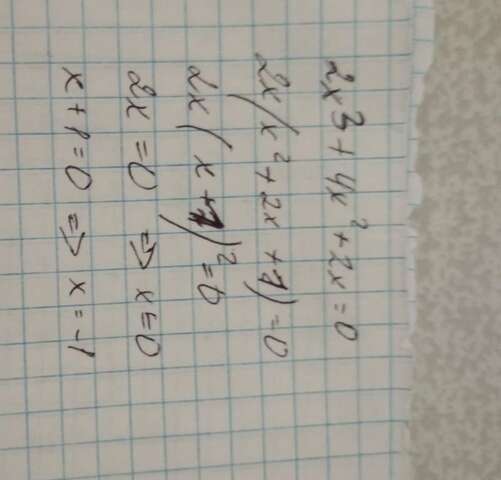 2x3 + 4x² + 2x = 0
2x(x² + 2x + 1) = 0
2x(x + 1)² = 0
2x = 0 => x = 0
x + 1 = 0 => x = -1